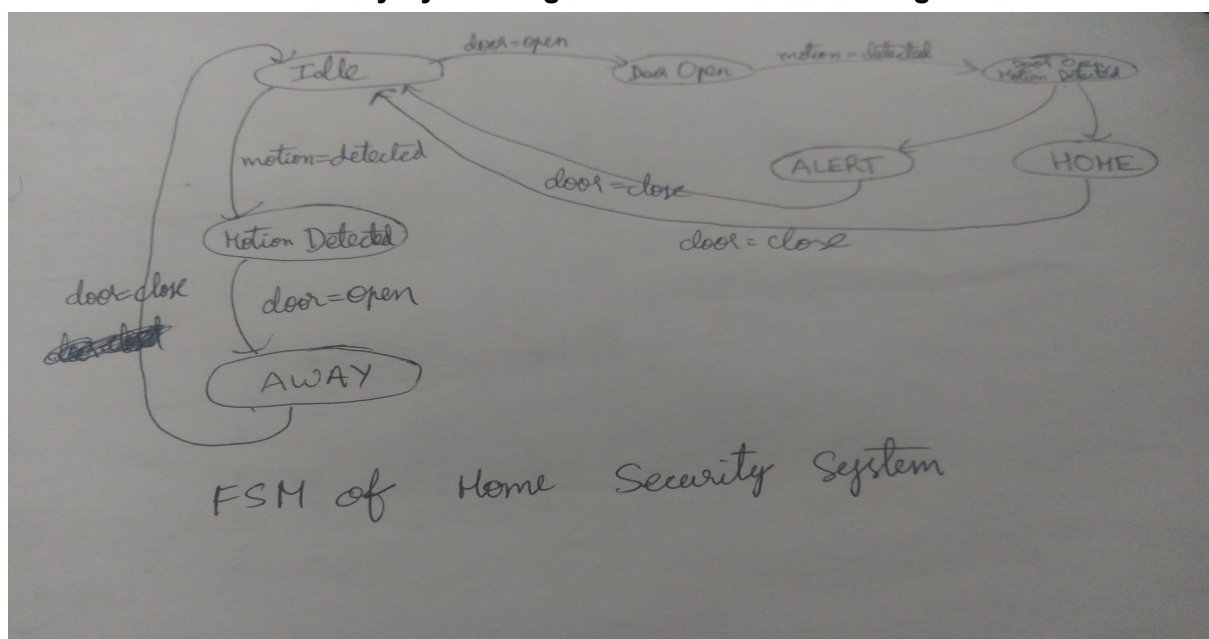 door=open
motion=detected
Idle
Door Open
Door Open
Motion Detected
motion=detected
ALERT
HOME
door=close
door=close
Motion Detected
door=close
door=open
AWAY
FSM of Home Security System